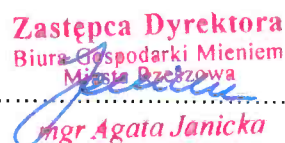 Zastępca Dyrektora
Biura Gospodarki Mieniem
Miasta Rzeszowa
mgr Agata Janicka